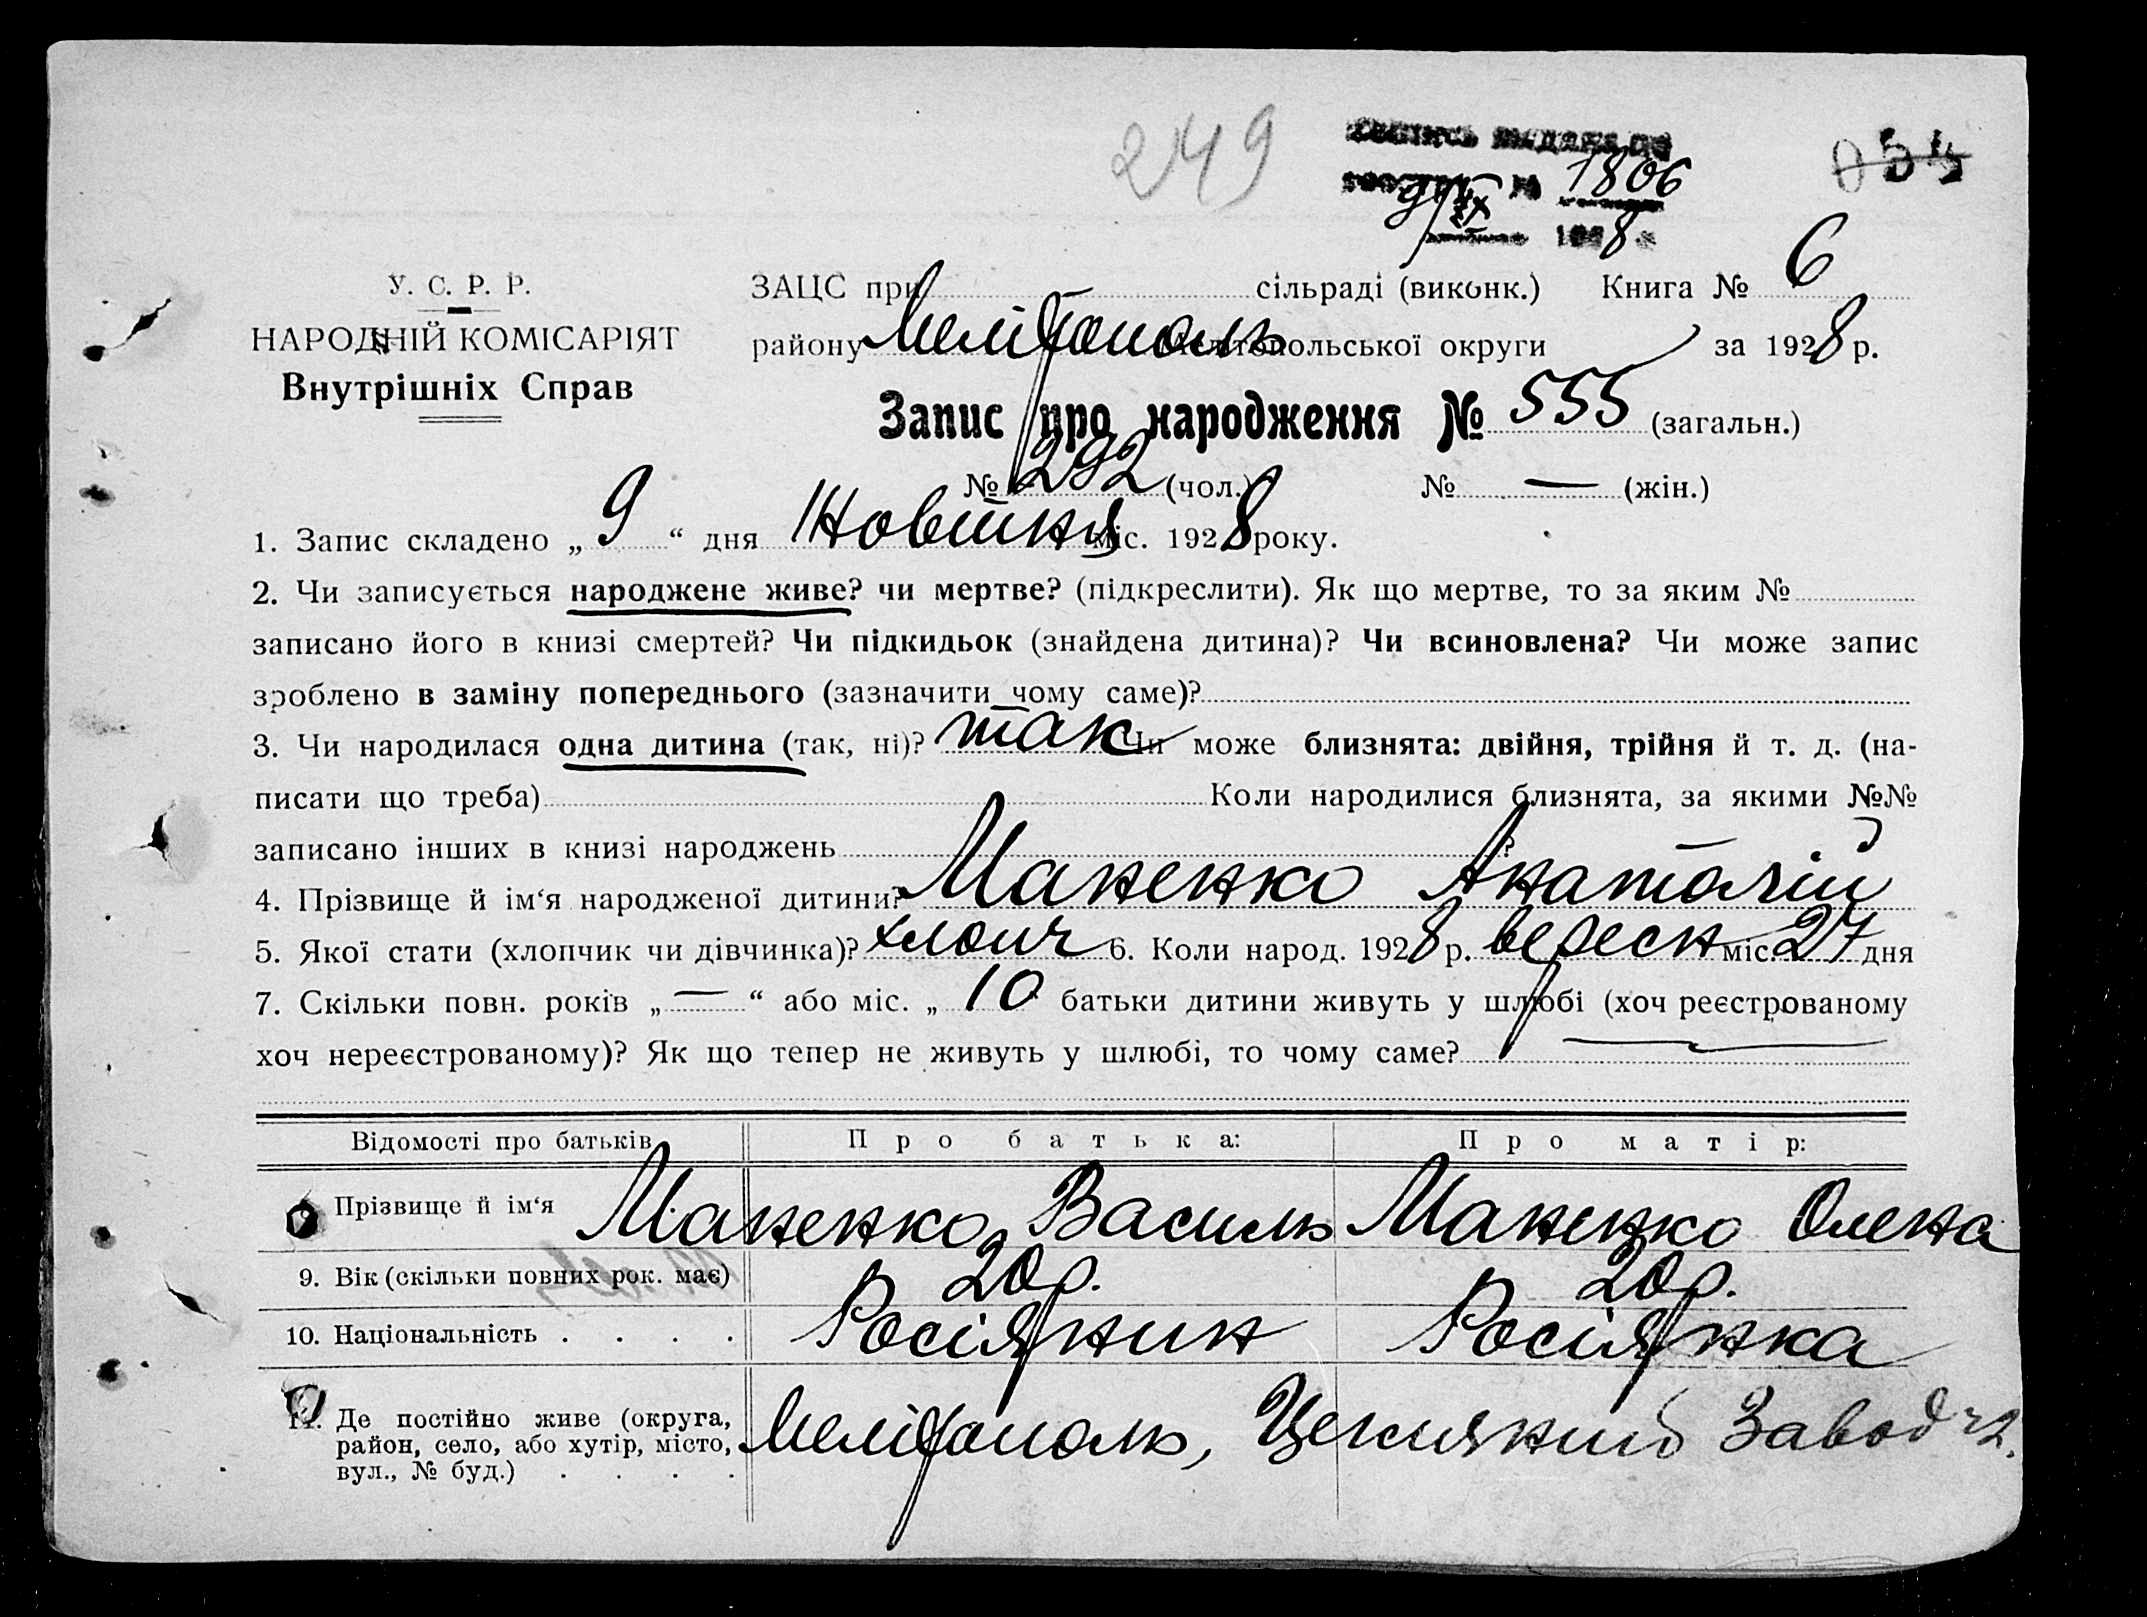 249
1806
9/IX
8
054
У. С. Р. Р.
НАРОДНІЙ КОМІСАРІЯТ
Внутрішніх Справ
ЗАЦС при сільраді (виконк.) Книга № 6
району Мелітополь Мелітопольської округи за 1928 р.
Запис про народження № 555 (загальн.)
№ 292 (чол.) № — (жін.)
1. Запис складено „ 9 “ дня Жовтня міс. 1928 року.
2. Чи записується народжене живе? чи мертве? (підкреслити). Як що мертве, то за яким №
записано його в книзі смертей? Чи підкидьок (знайдена дитина)? Чи всиновлена? Чи може запис
зроблено в заміну попереднього (зазначити чому саме)?
3. Чи народилася одна дитина (так, ні)? так Чи може близнята: двійня, трійня й т. д. (на-
писати що треба) Коли народилися близнята, за якими №№
записано інших в книзі народжень ?
4. Прізвище й ім‘я народженої дитини? Маненко Анатолій
5. Якої стати (хлопчик чи дівчинка)? хлопч 6. Коли народ. 1928 р. вересн міс. 27 дня
7. Скільки повн. років „ — “ або міс. „ 10 батьки дитини живуть у шлюбі (хоч реєстрованому
хоч нереєстрованому)? Як що тепер не живуть у шлюбі, то чому саме?
Відомості про батьків Про батька: Про матір:
Прізвище й ім‘я Маненко Василь Маненко Олена
9. Вік (скільки повних рок. має) 20 р. 20 р.
10. Національність . . . . Росіянин Росіянка
11. Де постійно живе (округа, Мелітополь, Завод
район, село, або хутір, місто,
вул., № буд.) . . . .